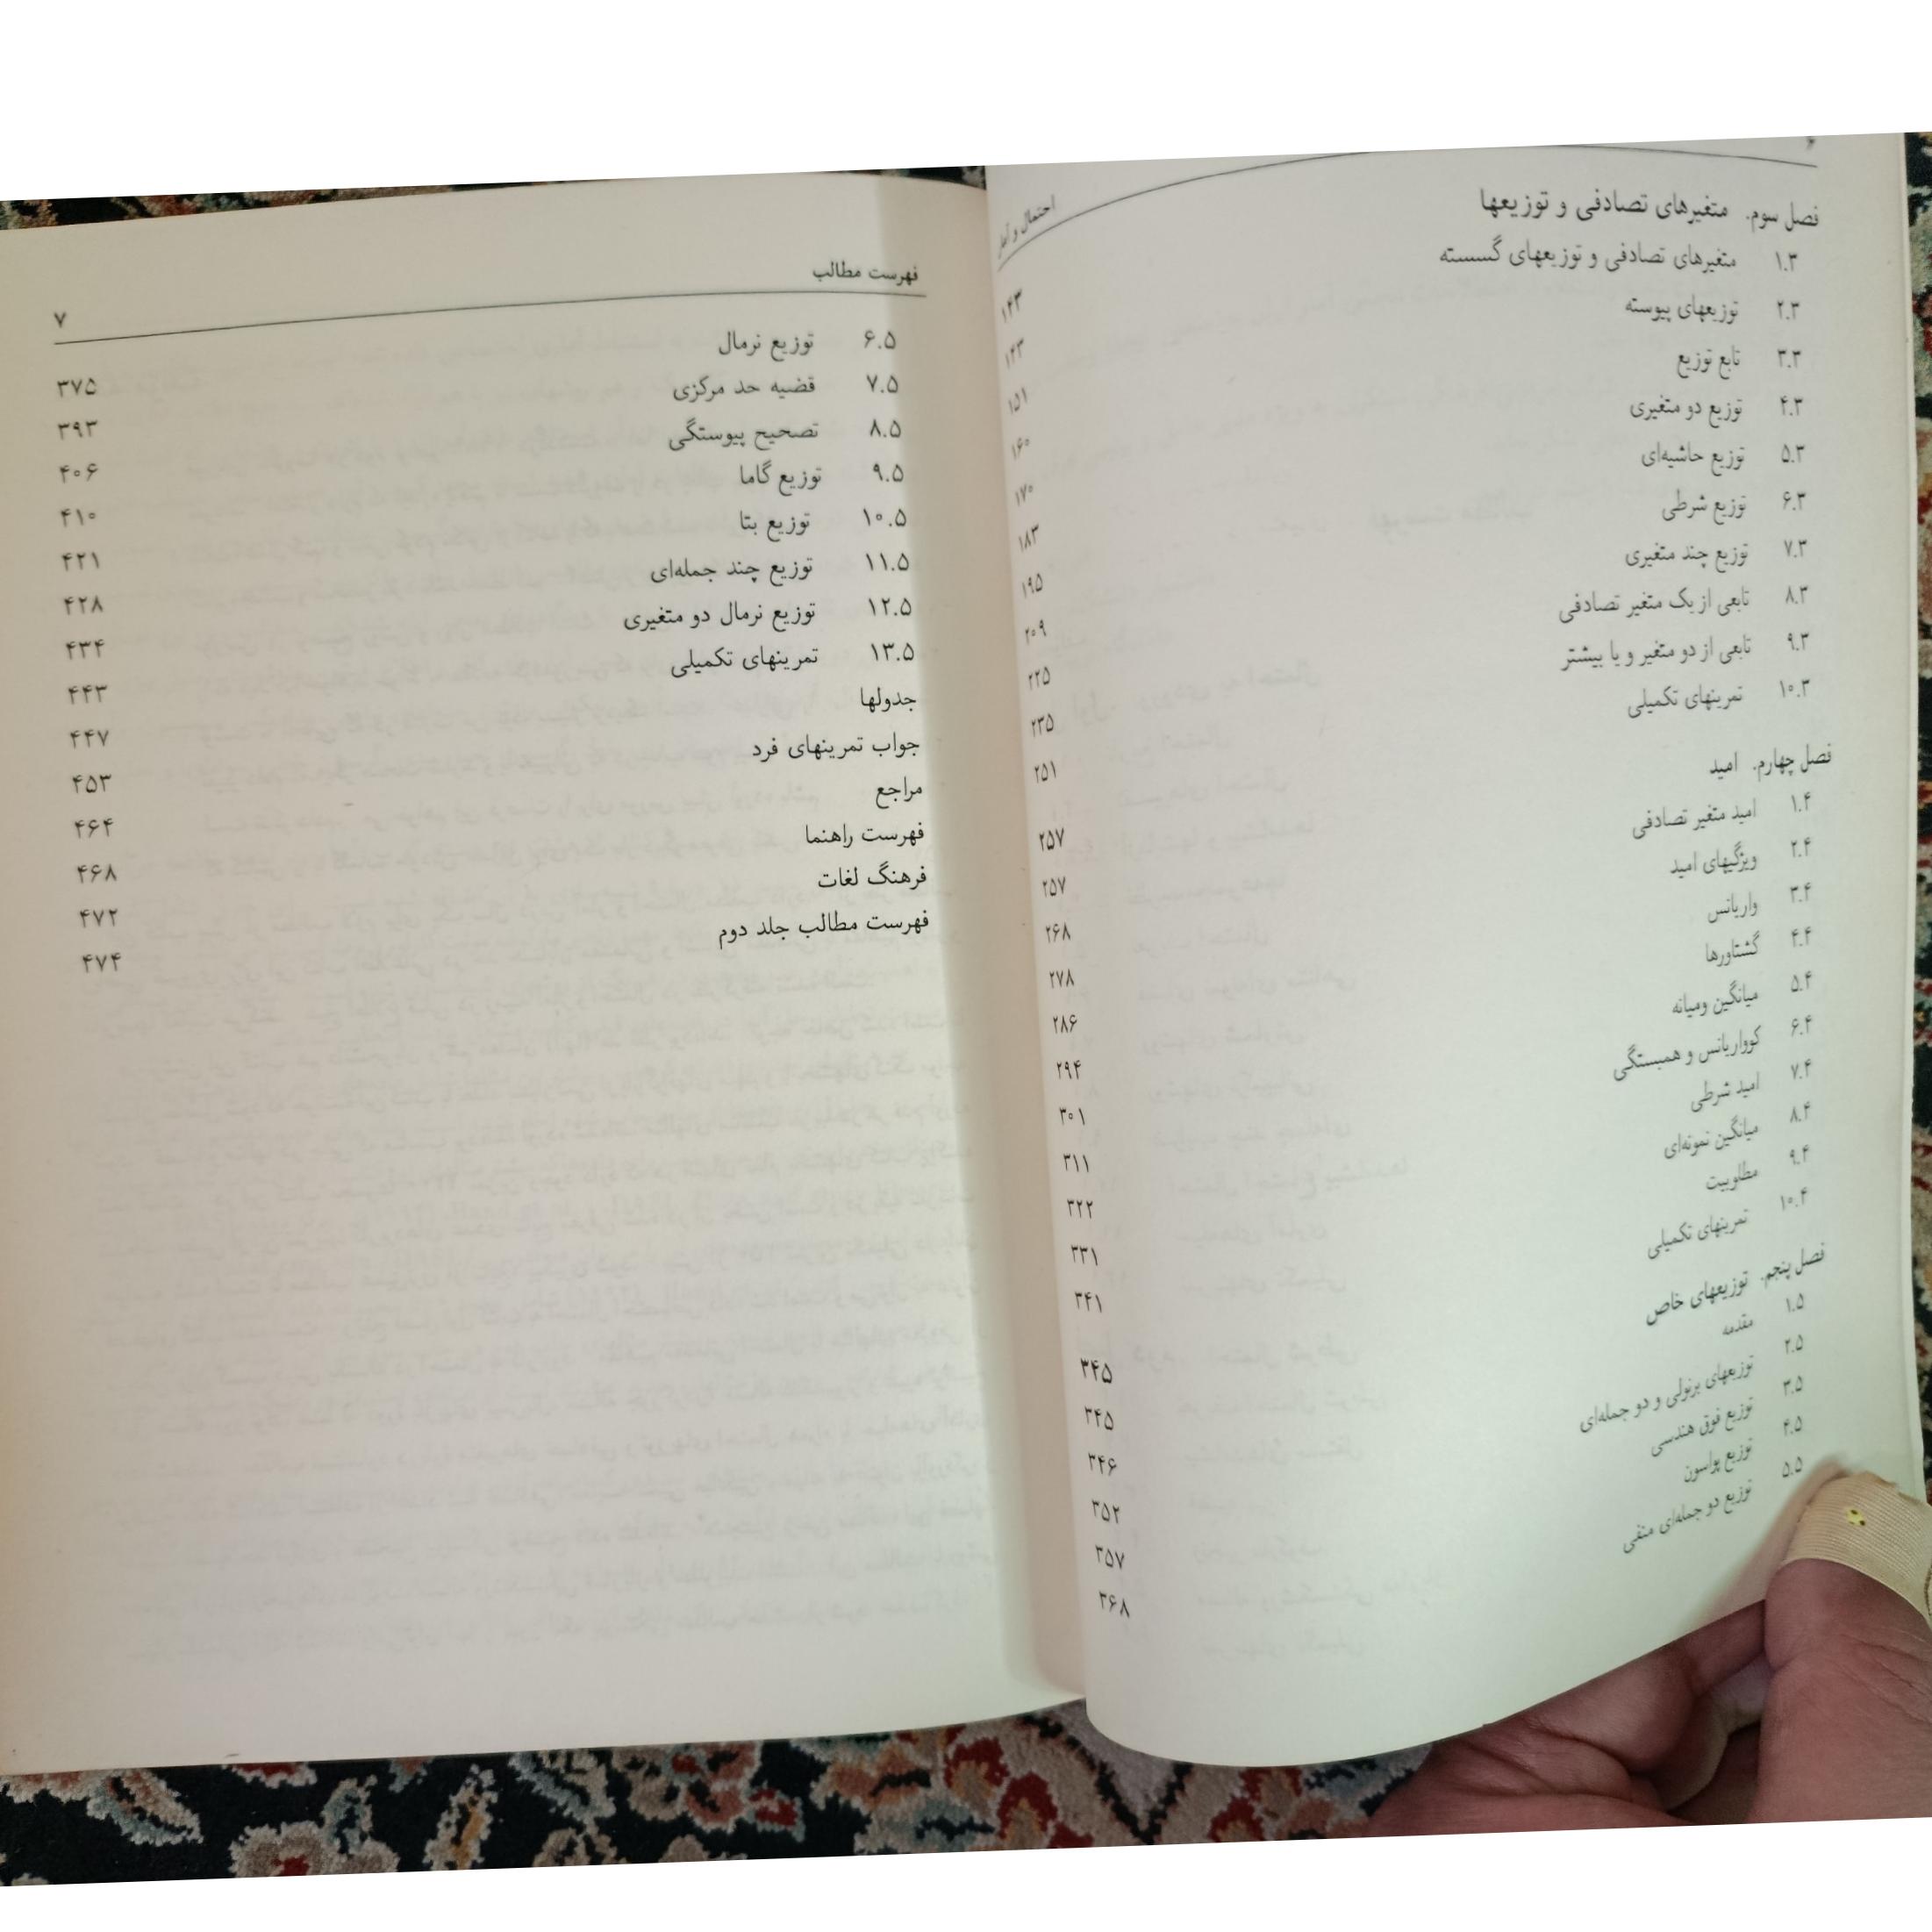 احتمال و آمار
فصل سوم. متغیرهای تصادفی و توزیعها ۱۴۳
۱.۳ متغیرهای تصادفی و توزیعهای گسسته ۱۴۳
۲.۳ توزیعهای پیوسته ۱۵۱
۳.۳ تابع توزیع ۱۶۰
۴.۳ توزیع دو متغیری ۱۷۰
۵.۳ توزیع حاشیه‌ای ۱۸۳
۶.۳ توزیع شرطی ۱۹۵
۷.۳ توزیع چند متغیری ۲۰۹
۸.۳ تابعی از یک متغیر تصادفی ۲۲۵
۹.۳ تابعی از دو متغیر و یا بیشتر ۲۳۵
۱۰.۳ تمرینهای تکمیلی ۲۵۱
فصل چهارم. امید ۲۵۷
۱.۴ امید متغیر تصادفی ۲۵۷
۲.۴ ویژگیهای امید ۲۶۸
۳.۴ واریانس ۲۷۸
۴.۴ گشتاورها ۲۸۶
۵.۴ میانگین ومیانه ۲۹۴
۶.۴ کوواریانس و همبستگی ۳۰۱
۷.۴ امید شرطی ۳۱۱
۸.۴ میانگین نمونه‌ای ۳۲۲
۹.۴ مطلوبیت ۳۳۱
۱۰.۴ تمرینهای تکمیلی ۳۴۱
فصل پنجم. توزیعهای خاص ۳۴۵
۱.۵ مقدمه ۳۴۵
۲.۵ توزیعهای برنولی و دو جمله‌ای ۳۴۶
۳.۵ توزیع فوق هندسی ۳۵۲
۴.۵ توزیع پواسون ۳۵۷
۵.۵ توزیع دو جمله‌ای منفی ۳۶۸
فهرست مطالب ۷
۶.۵ توزیع نرمال ۳۷۵
۷.۵ قضیه حد مرکزی ۳۹۳
۸.۵ تصحیح پیوستگی ۴۰۶
۹.۵ توزیع گاما ۴۱۰
۱۰.۵ توزیع بتا ۴۲۱
۱۱.۵ توزیع چند جمله‌ای ۴۲۸
۱۲.۵ توزیع نرمال دو متغیری ۴۳۴
۱۳.۵ تمرینهای تکمیلی ۴۴۳
جدولها ۴۴۷
جواب تمرینهای فرد ۴۵۳
مراجع ۴۶۴
فهرست راهنما ۴۶۸
فرهنگ لغات ۴۷۲
فهرست مطالب جلد دوم ۴۷۴